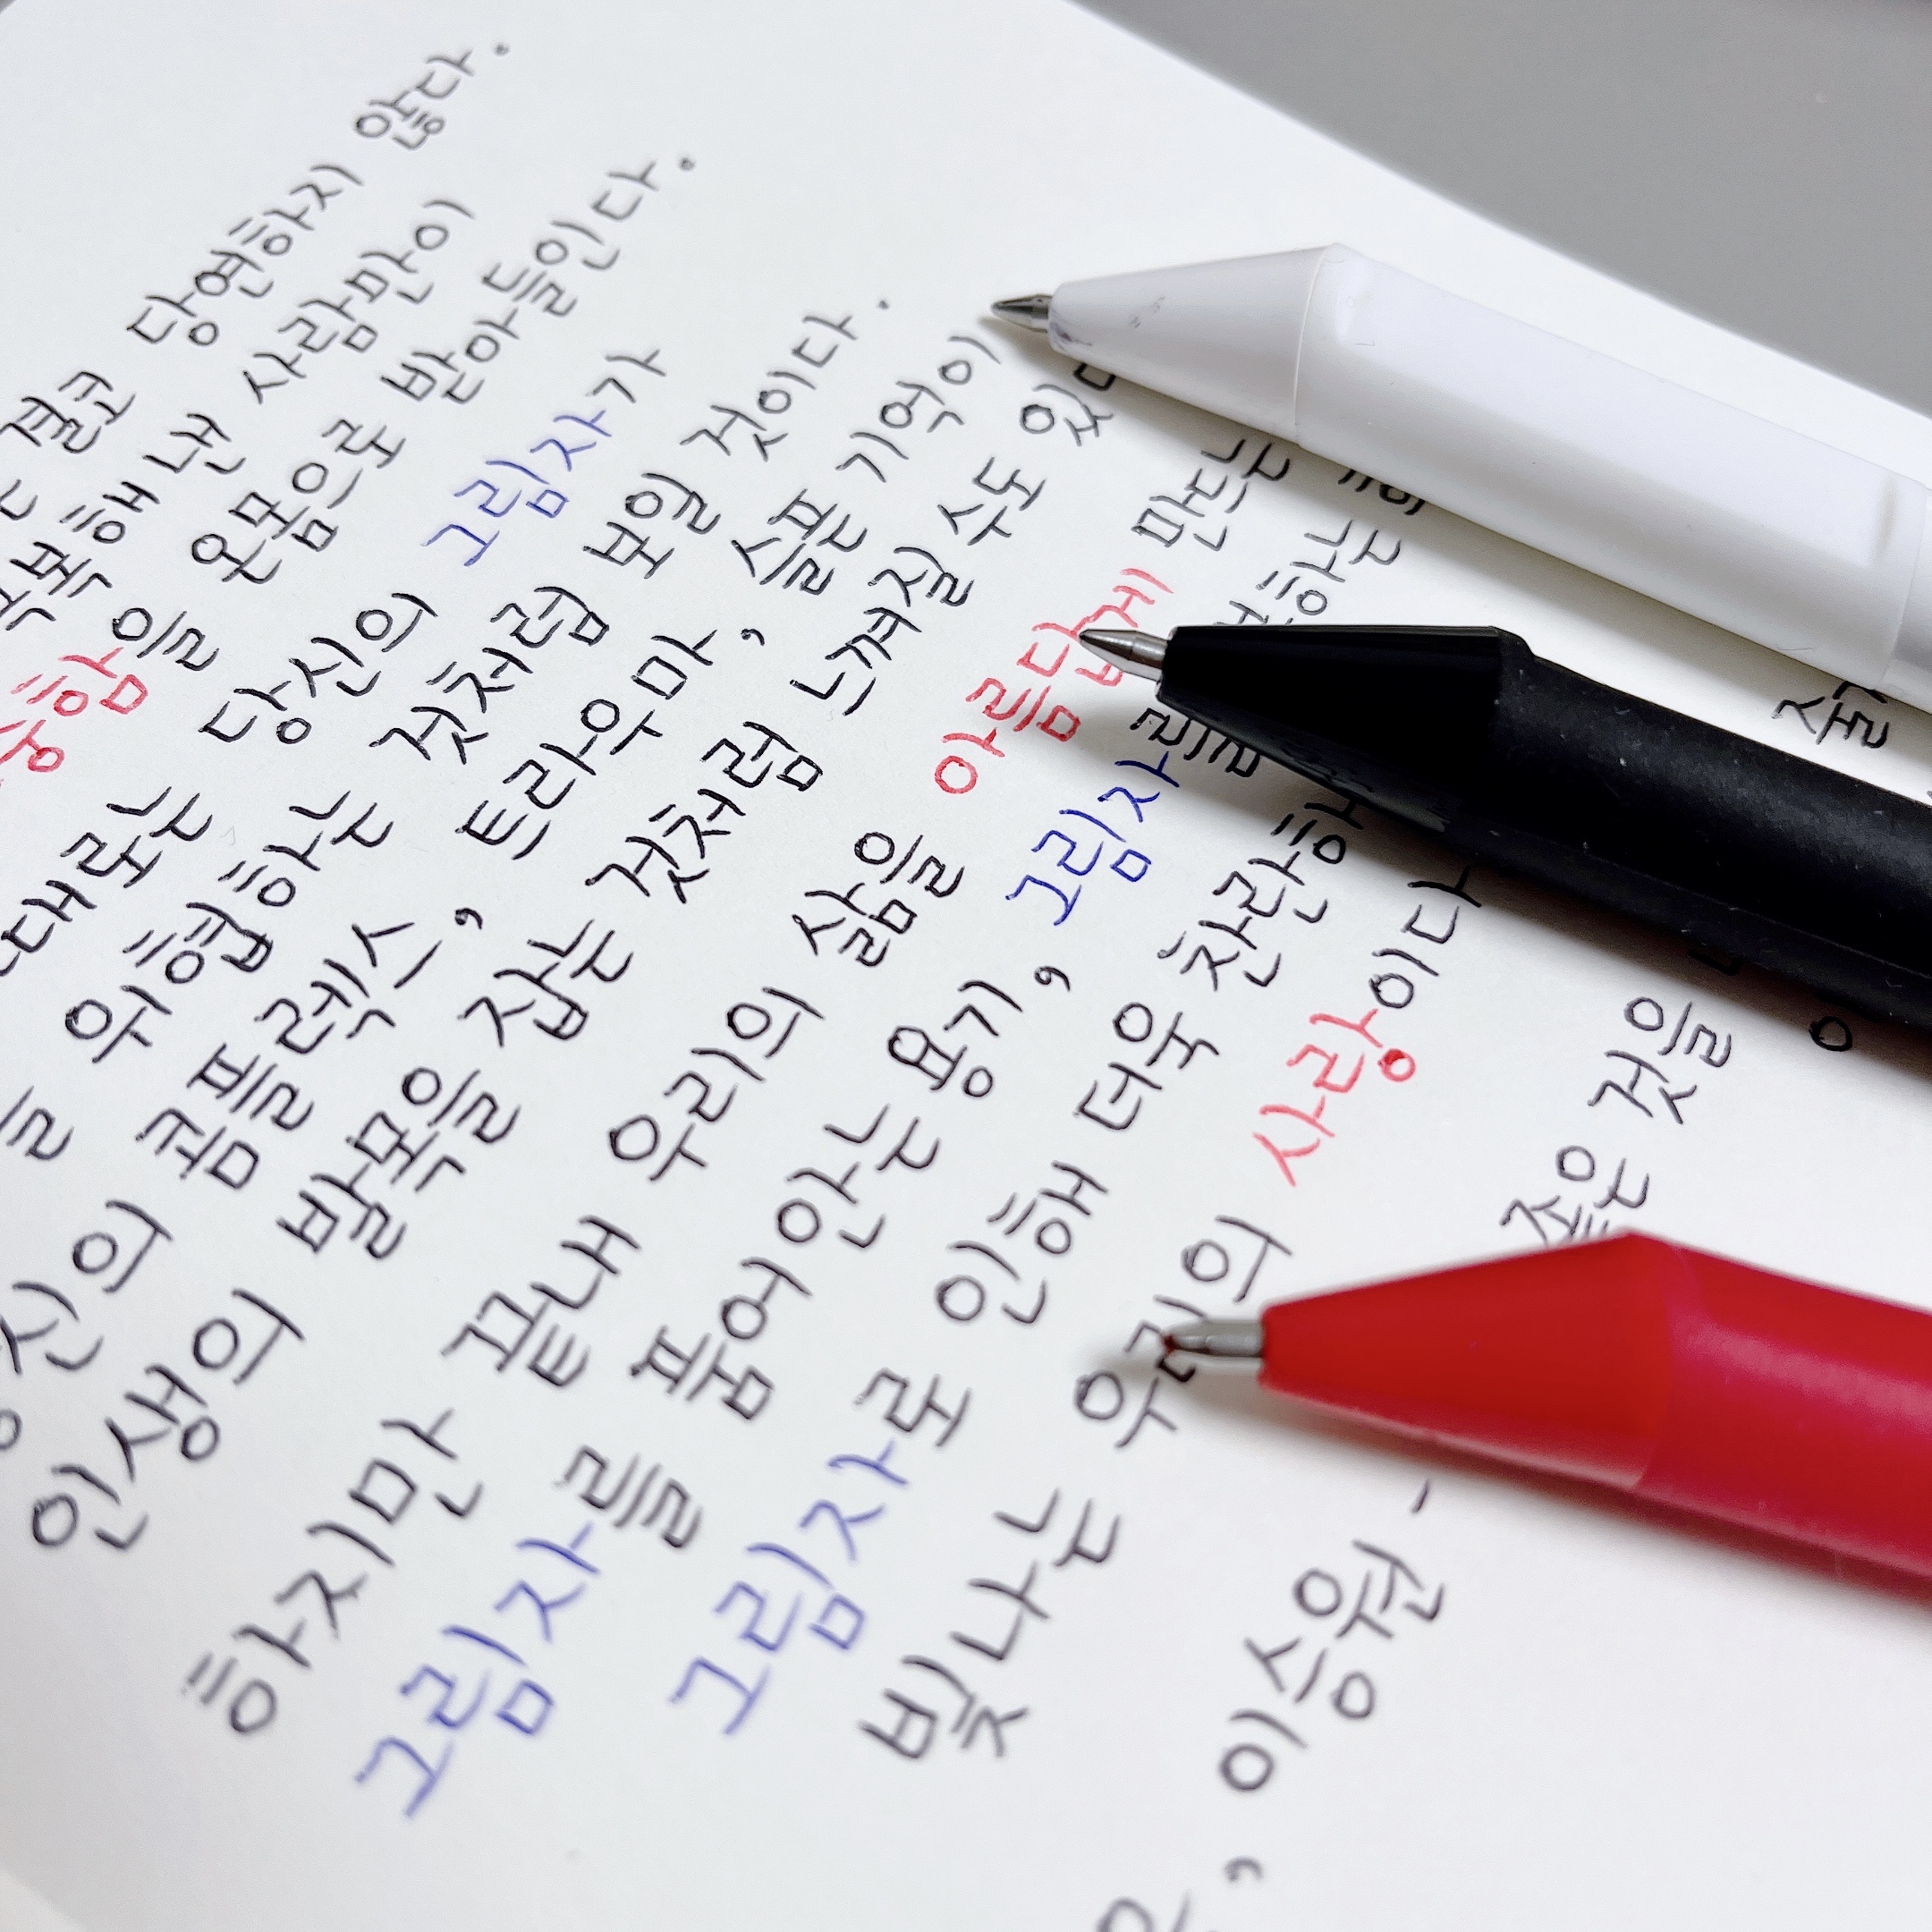 결코 당연하지 않다.
해 낸 사람만이
을 온몸으로 받아들인다.
때로는 당신의 그림자가
를 위협하는 것처럼 보일 것이다.
당신의 콤플렉스, 트라우마, 슬픈 기억이
인생의 발목을 잡는 것처럼 느껴질 수도 있다
하지만 끝내 우리의 삶을 아름답게 만드는
그림자를 품어안는 용기, 그림자를 하는
그림자로 인해 더욱 찬란해
빛나는 우리의 사랑이다
좋은 것을
이승원 -